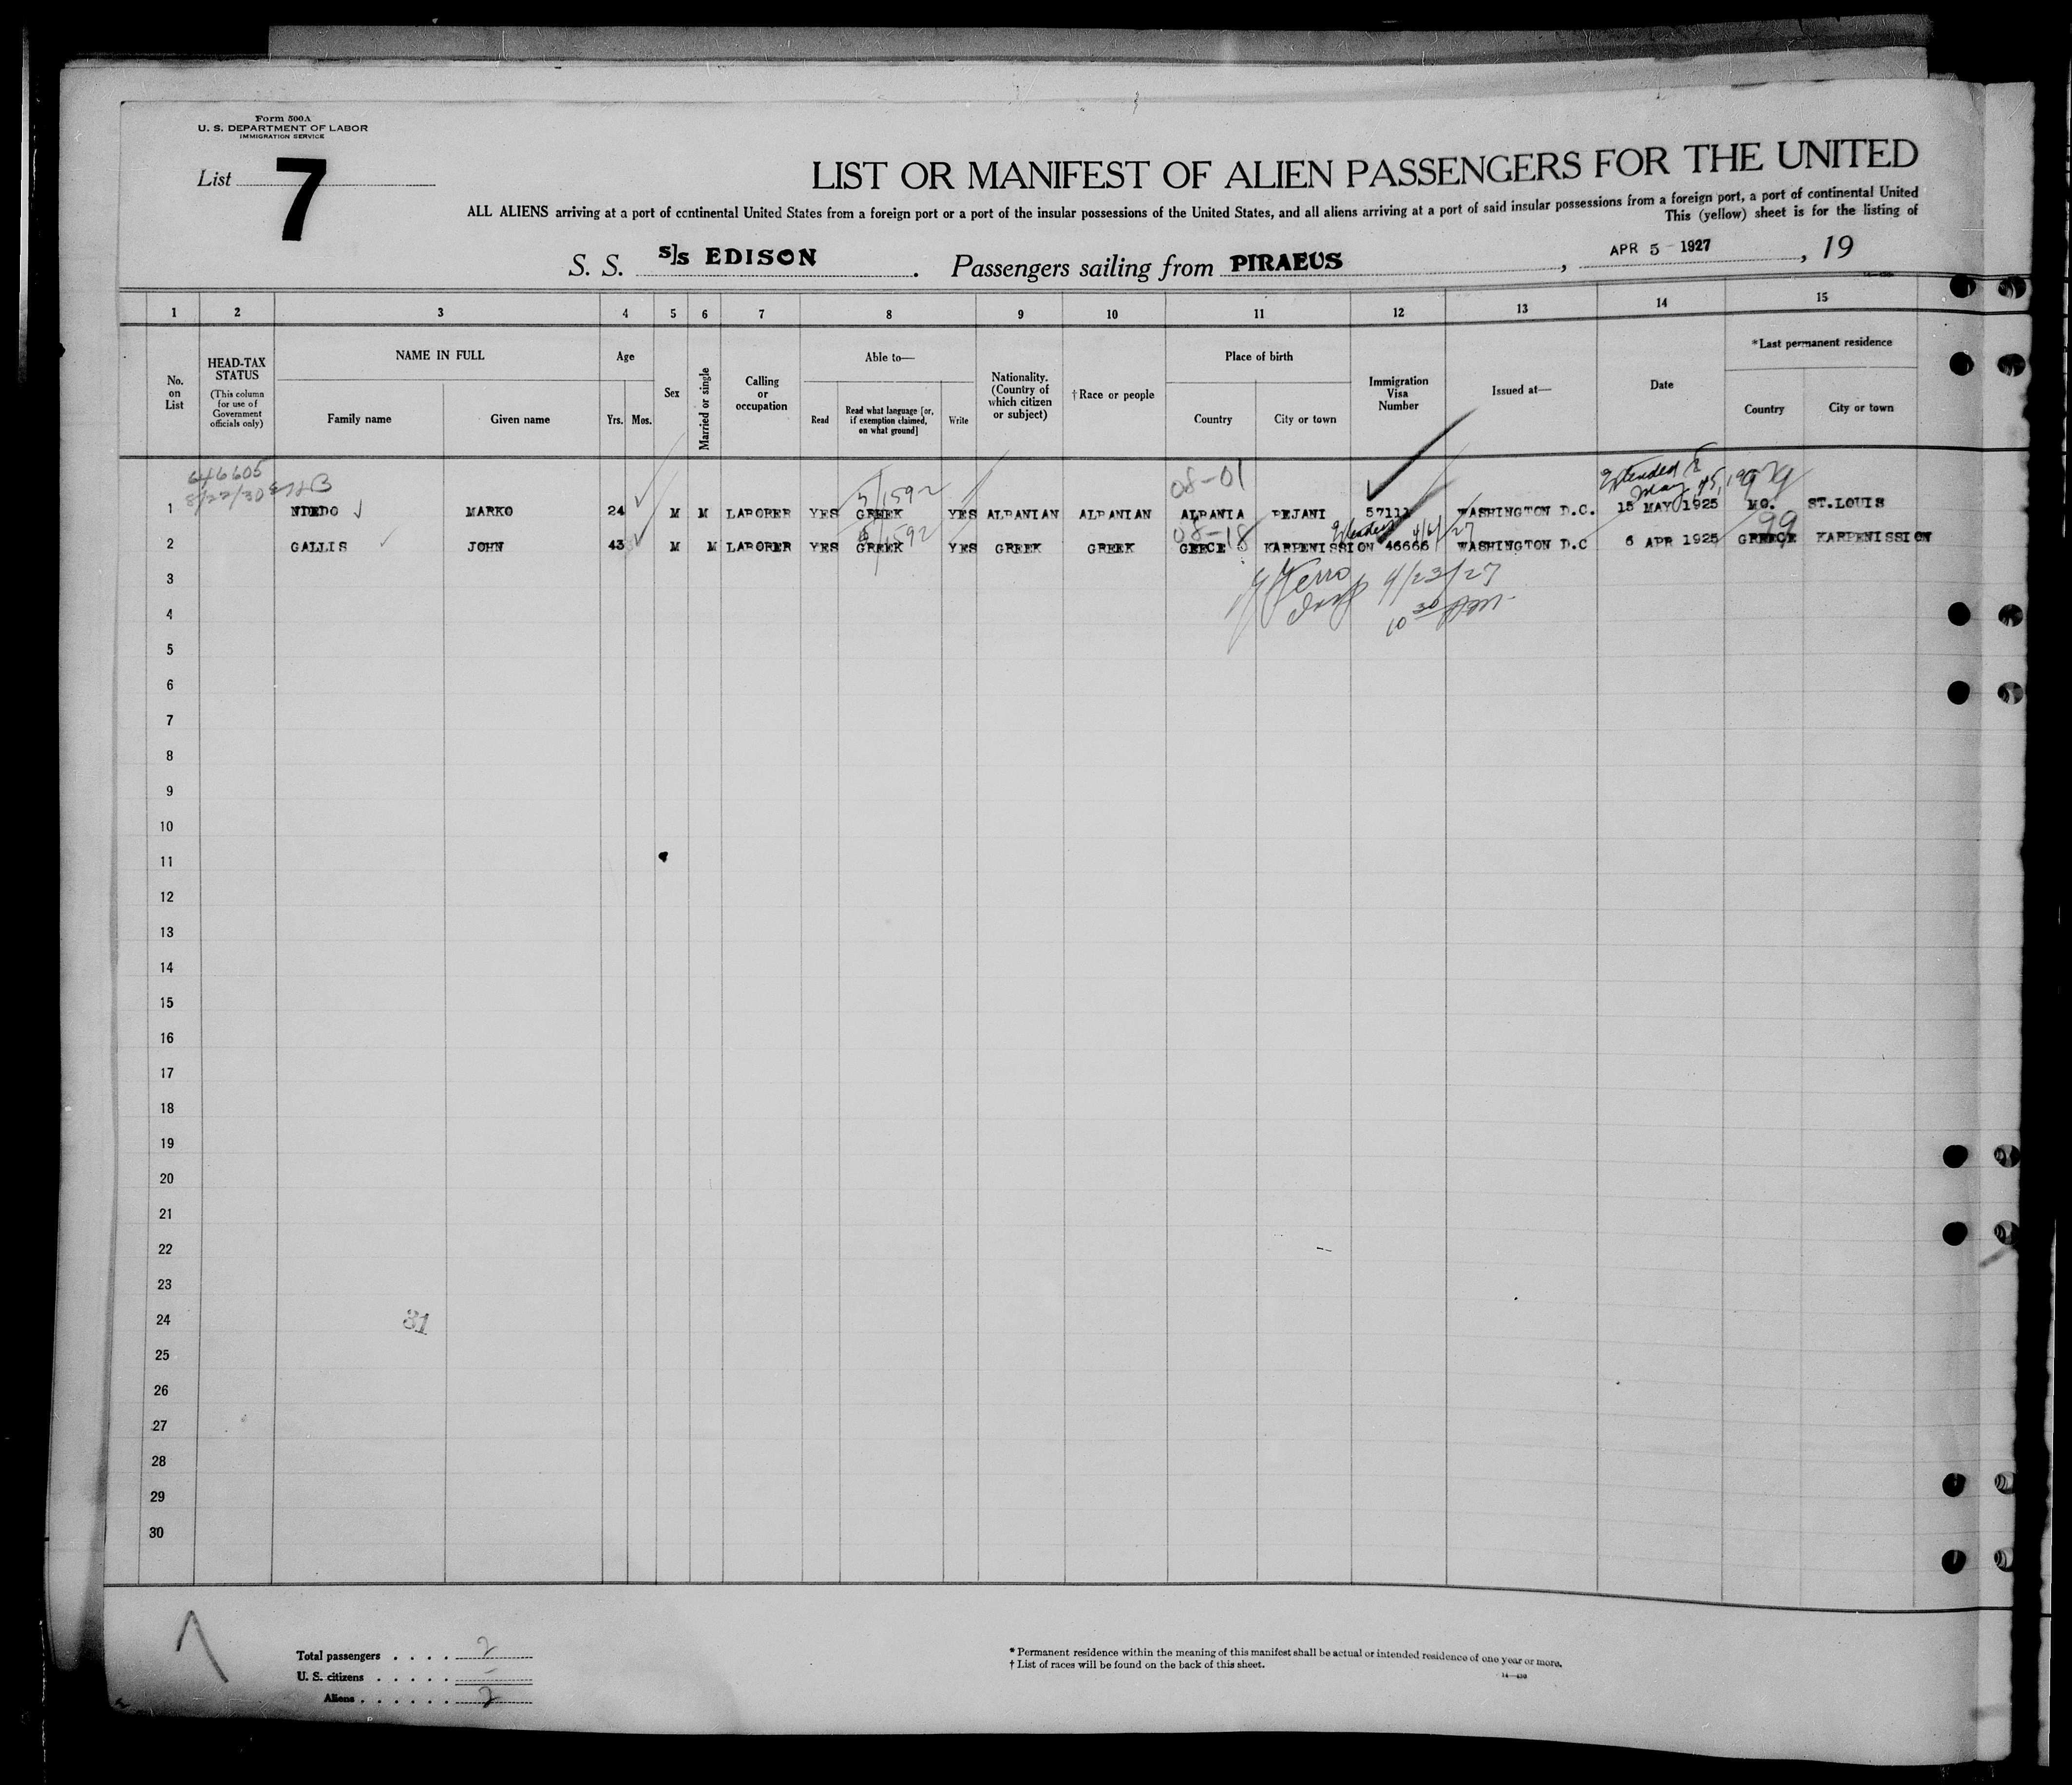 Form 500A
U. S. DEPARTMENT OF LABOR
IMMIGRATION SERVICE
List 7
LIST OR MANIFEST OF ALIEN PASSENGERS FOR THE UNITED
ALL ALIENS arriving at a port of continental United States from a foreign port or a port of the insular possessions of the United States, and all aliens arriving at a port of said insular possessions from a foreign port, a port of continental United
This (yellow) sheet is for the listing of
S. S. S/S EDISON . Passengers sailing from PIRAEUS , APR 5 - 1927 , 19
1 2 3 4 5 6 7 8 9 10 11 12 13 14 15
No. on List
HEAD-TAX STATUS
(This column for use of Government officials only)
NAME IN FULL
Family name
Given name
Age
Yrs. Mos.
Sex
Married or single
Calling or occupation
Able to—
Read
Read what language [or, if exemption claimed, on what ground]
Write
Nationality. (Country of which citizen or subject)
† Race or people
Place of birth
Country
City or town
Immigration Visa Number
Issued at—
Date
*Last permanent residence
Country
City or town
646605
8/22/30
5/1592
08-01
Extended
May 15, 19
99
1 NDEDO MARKO 24 M M LABORER YES GREEK YES ALBANIAN ALBANIAN ALBANIA PEJANI 57111 WASHINGTON D.C. 15 MAY 1925 MO. ST.LOUIS
5/1592
08-18
4/6/27
99
2 GALLIS JOHN 43 M M LABORER YES GREEK YES GREEK GREEK GEECE KARPENISSION 46666 WASHINGTON D.C 6 APR 1925 GREECE KARPENISSION
4/23/27
10 30 AM
3
4
5
6
7
8
9
10
11
12
13
14
15
16
17
18
19
20
21
22
23
24
31
25
26
27
28
29
30
Total passengers . . . . 2
U. S. citizens . . . . . –
Aliens . . . . . . 2
* Permanent residence within the meaning of this manifest shall be actual or intended residence of one year or more.
† List of races will be found on the back of this sheet.
14—430